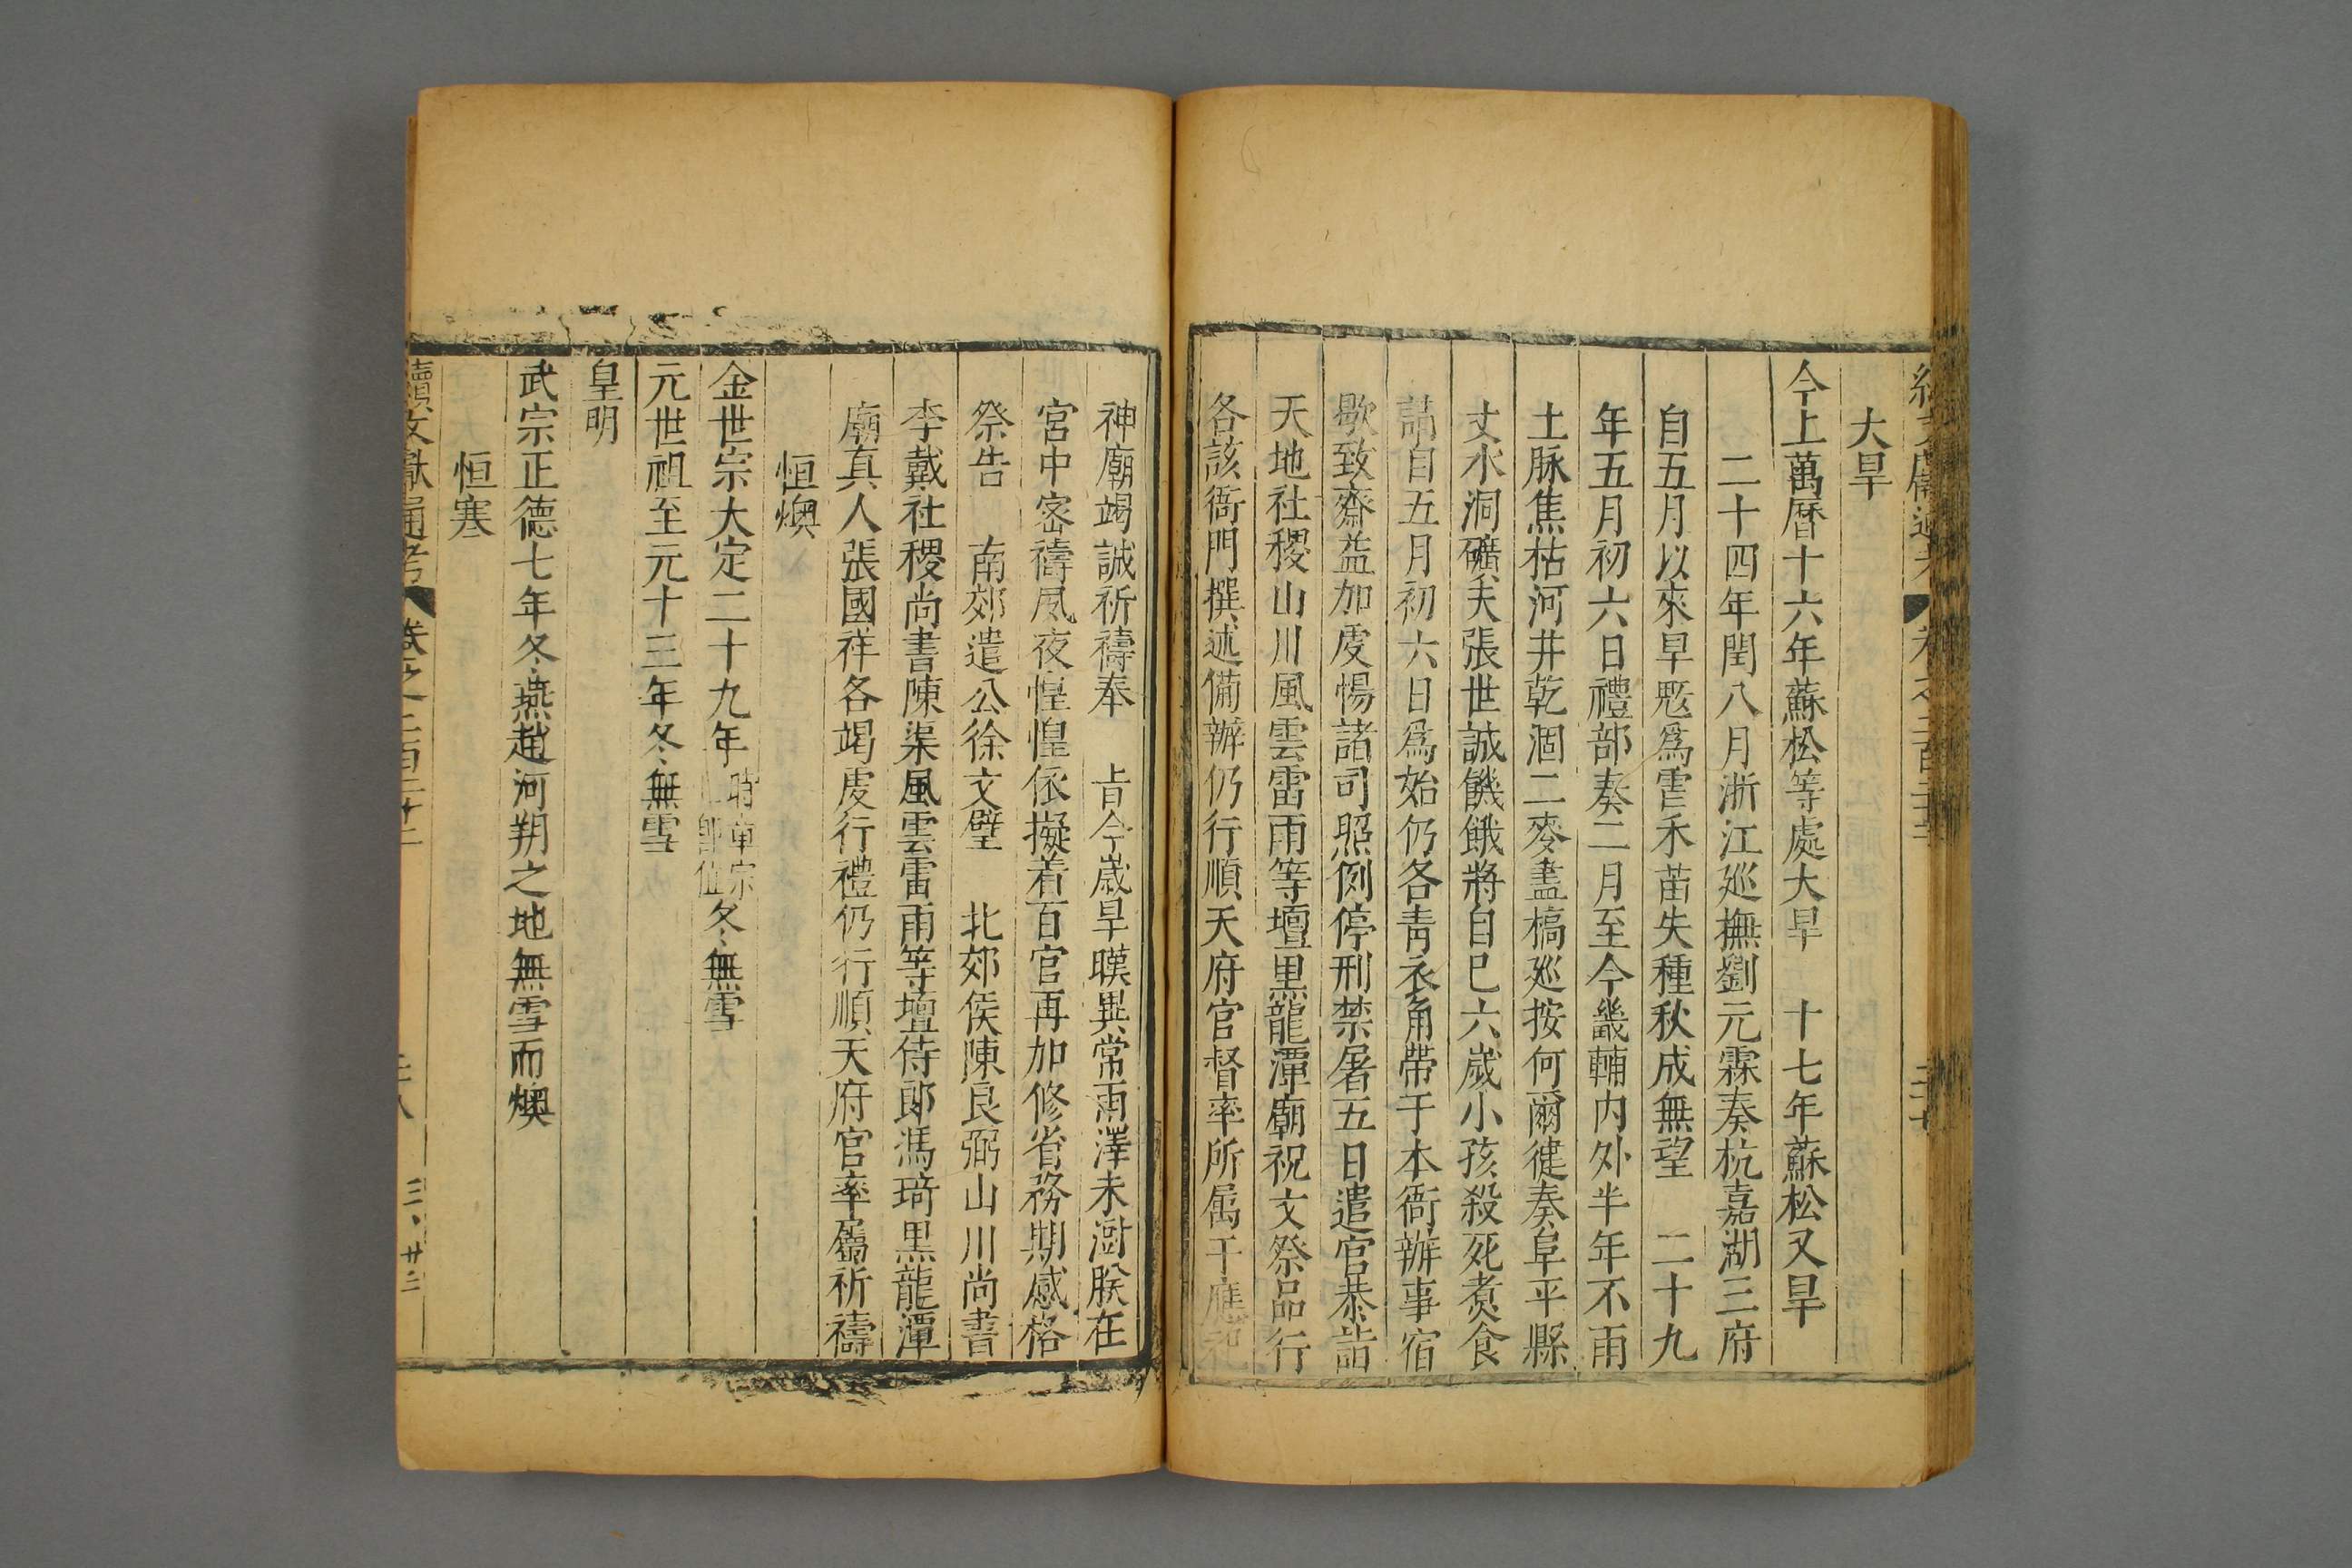 大旱
今上萬曆十六年蘇松等處大旱　十七年蘇松又旱
二十四年閏八月浙江廵撫劉元霖奏杭嘉湖三府
自五月以來旱魃爲害禾苗失種秋成無望　二十九
年五月初六日禮部奏二月至今畿輔内外半年不雨
土脉焦枯河井乾涸二麥盡槁廵按何爾徤奏阜平縣
丈水洞礦夫張世誠饑餓將自巳六歲小孩殺死煮食
請自五月初六日爲始仍各青衣角帶于本衙辦事宿
歇致齋益加虔惕諸司照例停刑禁屠五日遣官恭詣
天地社稷山川風雲雷雨等壇黒龍潭廟祝文祭品行
各該衙門撰述備辦仍行順天府官督率所属于應祀
神廟竭誠祈禱奉　旨今歲旱暵異常雨澤未澍朕在
宮中宻禱夙夜惶惶依擬着百官再加修省務期感格
祭告　南郊遣公徐文璧　北郊侯陳良弼山川尚書
李戴社稷尚書陳渠風雲雷雨等壇侍郎馮琦黒龍潭
廟真人張國祥各竭虔行禮仍行順天府官率屬祈禱
恒燠
金世宗大定二十九年時章宗卽位冬無雪
元世祖至元十三年冬無雪
皇明
武宗正德七年冬燕趙河朔之地無雪而燠
恒寒
續文獻通考　卷之二百二十二　二十八